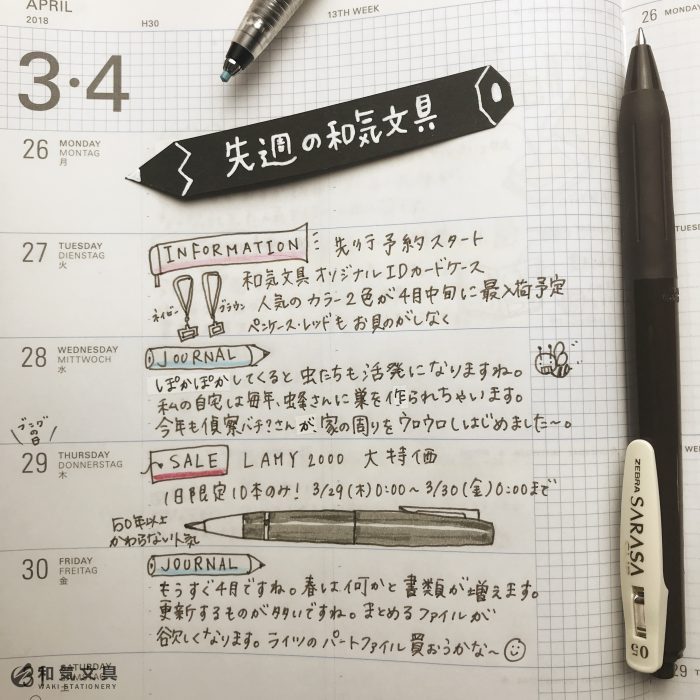 APRIL
2018
H30
13TH WEEK
26 MONDAY
3・4
先週の和気文具
26 MONDAY
MONTAG
月
27 TUESDAY
DIENSTAG
火
INFORMATION
先行予約スタート
和気文具オリジナルIDカードケース
ネイビー
ブラウン
人気のカラー2色が4月中旬に最入荷予定
ペンケース・レッドもお見のがしなく
28 WEDNESDAY
MITTWOCH
水
JOURNAL
ぽかぽかしてくると虫たちも活発になりますね。
私の自宅は毎年、蜂さんに巣を作られちゃいます。
今年も偵察バチ?さんが、家の周りをウロウロしはじめました〜。
ブングの日
29 THURSDAY
DONNERSTAG
木
SALE
LAMY 2000 大特価
1日限定10本のみ! 3/29(木)0:00〜3/30(金)0:00まで
50年以上
かわらない人気
30 FRIDAY
FREITAG
金
JOURNAL
もうすぐ4月ですね。春は何かと書類が増えます。
更新するものが多いですね。まとめるファイルが
欲しくなります。ライツのパートファイル買おうかな〜
SATURDAY
SAMSTAG
土
和気文具
WAKI STATIONERY
ZEBRA SARASA
05
29